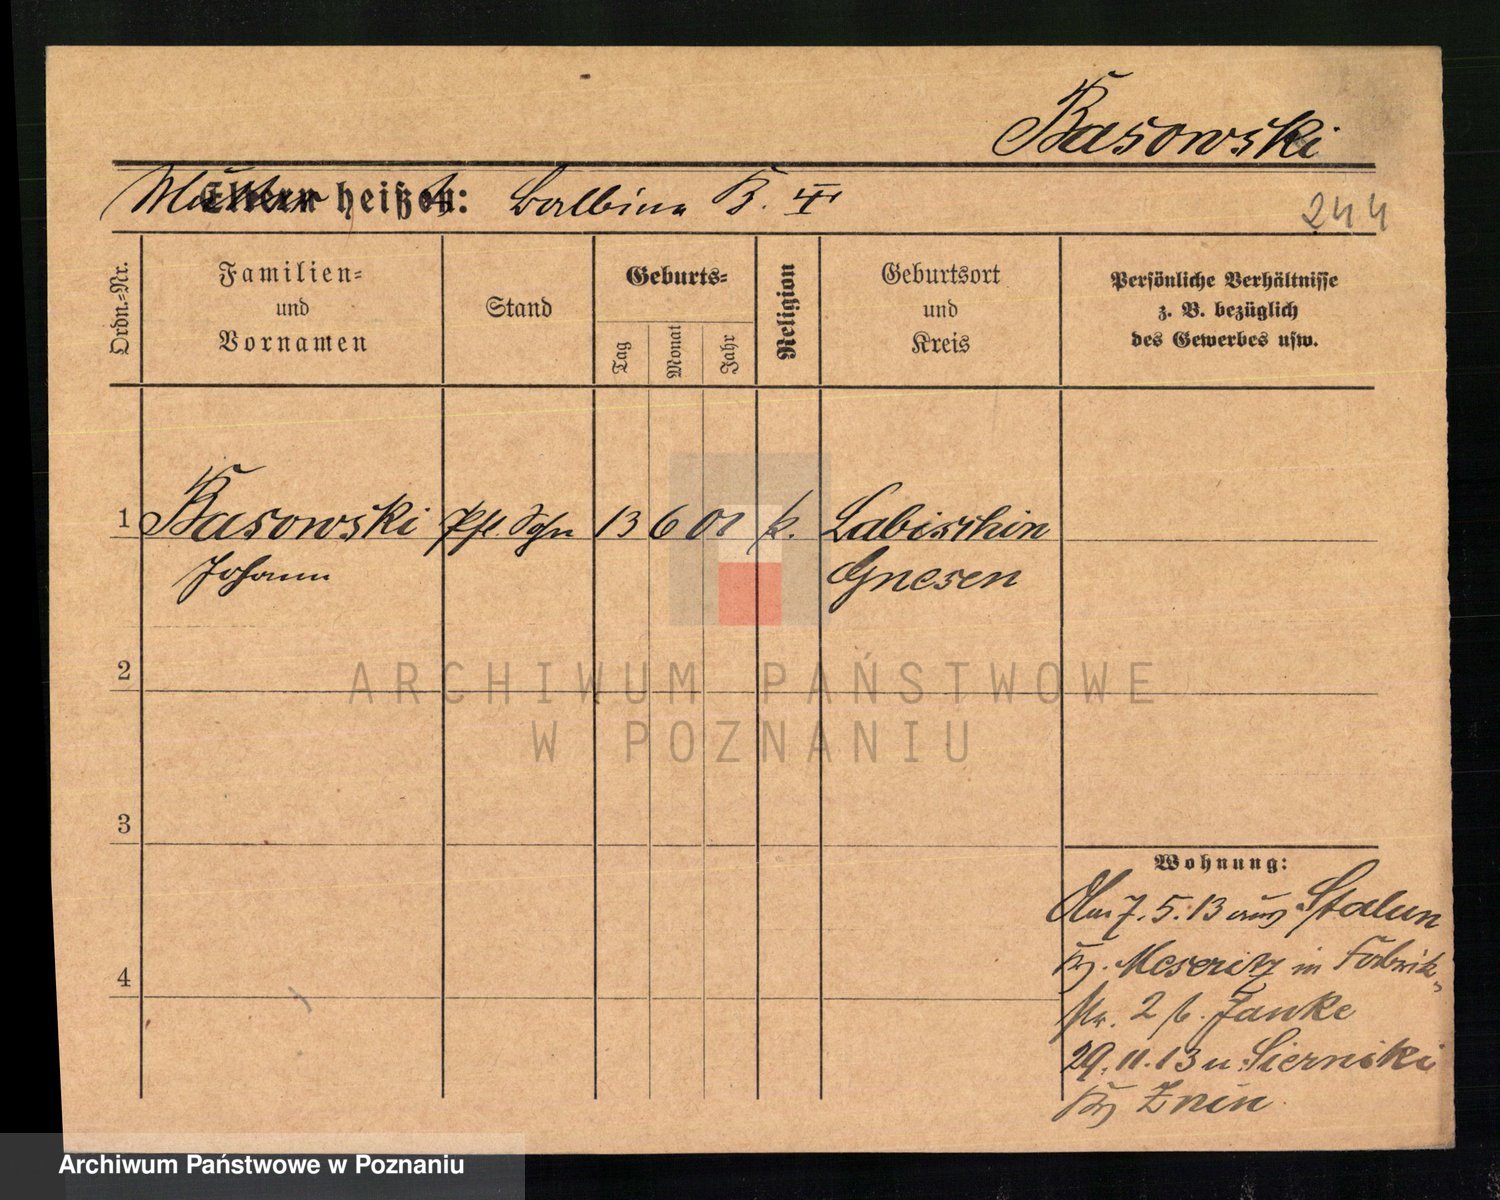 Basowski
Mutter heißt: Balbina B. III
244
Ordn.-Nr.
Familien-
und
Vornamen
Stand
Geburts-
Tag
Monat
Jahr
Religion
Geburtsort
und
Kreis
Persönliche Verhältnisse
z. B. bezüglich
des Gewerbes usw.
1 Basowski Pfl. Sohn 13 6 01 k. Labischin
Johann Gnesen
2
3
4
Wohnung:
Am 7.5.13 aus Stalun
Kr. Meseritz in Fabrik-
str. 2 b. Janke
29.11.13 n. Sierniki
Kr Znin
ARCHIWUM PAŃSTWOWE
W POZNANIU
Archiwum Państwowe w Poznaniu